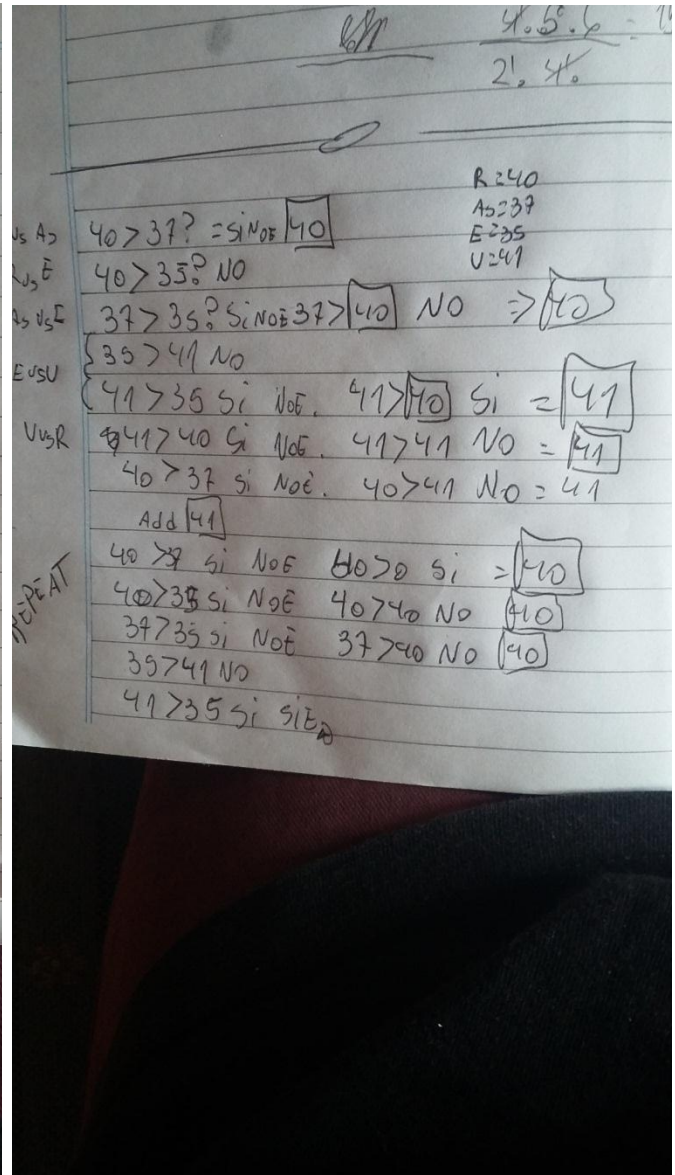 4.5.6 =
2!. 4!
R=40
As=37
E=35
U=41
vs As 40>37? =Si NOE 40
R vs E 40>35? NO
As vs E 37>35? Si NOE 37>40 NO => 40
35>41 NO
E vs U
41>35 Si NOE. 41>40 Si = 41
U vs R 41>40 Si NOE. 41>41 NO = 41
40>37 si NOE. 40>41 NO = 41
Add 41
REPEAT
40>37 si NOE 40>0 si = 40
40>35 si NOE 40>40 NO 40
37>35 si NOE 37>40 NO 40
35>41 NO
41>35 Si SiE